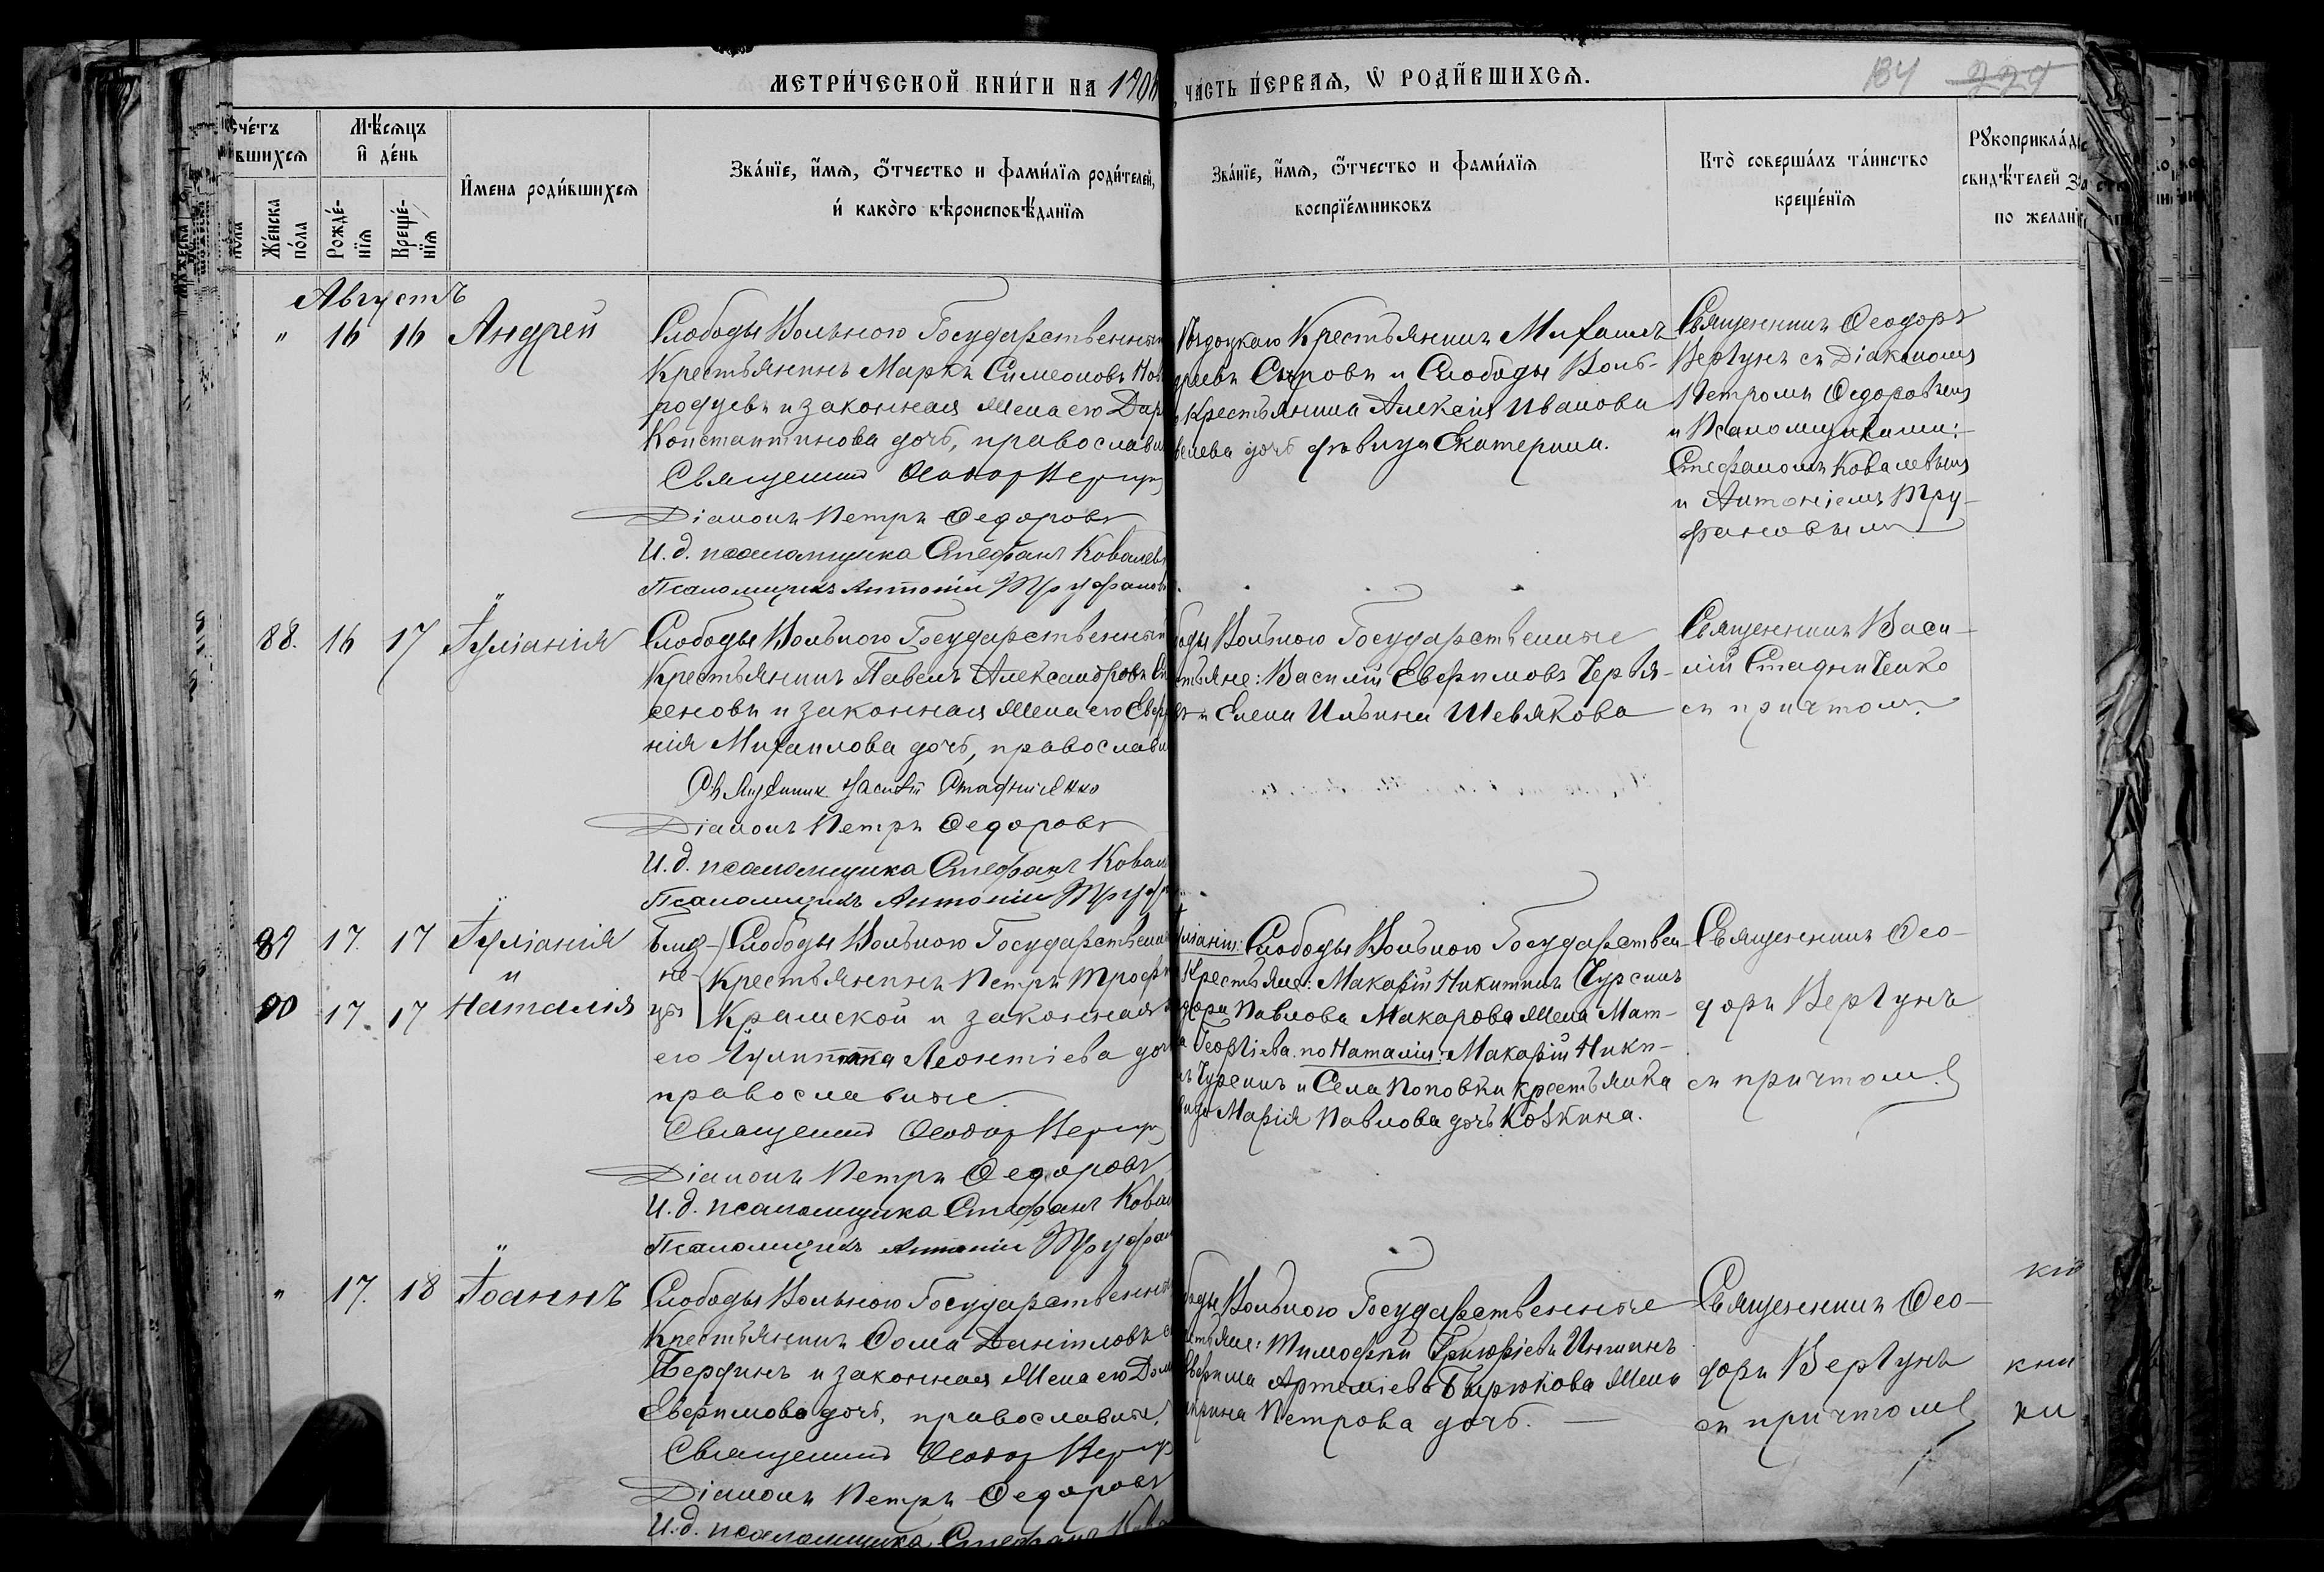 МЕТРИ́ЧЕСКОЙ КНИ́ГИ НА 190
ЧА́СТЬ ПЕ́РВАЯ, Ѡ РОДИ́ВШИХСЯ.
184 229
Сче́тъ
вшихся
Мѣ́сяцъ
и де́нь
Же́нска
по́ла
Рожде́-
нїя
Креще́-
нїя
Имена роди́вшихся
Зва́нїе, и́мя, о́тчество и фами́лїя роди́телей,
и како́го вѣроисповѣ́данїя
Зва́нїе, и́мя, о́тчество и фами́лїя
воспрїе́мниковъ
Кто̀ соверша́лъ та́инство
креще́нїя
Рꙋкоприкла́д
свидѣ́телей
по желані
Августъ
" 16 16 Андрей
Слободы Вольного Государственный
Крестьянинъ Маркъ Симеоновъ
родцевъ и законная жена его Дар
Константинова дочь, православн
Священник Феодор Вергун
Діаконъ Петръ Федоровъ
И. д. псаломщика Стефанъ Ковалевъ
Псаломщикъ Антоній Труфановъ
Крестьянинъ Михаилъ
Сѣровъ и Слободы Воль-
Крестьянина Алексія Иванова
дочь дѣвица Екатерина.
Священникъ Феодоръ
Вергунъ съ Діакономъ
Петромъ Федоровымъ
и Псаломщиками:
Стефаномъ Ковалевымъ
и Антоніемъ Тру-
фановымъ
88. 16 17 Іуліанія
Слободы Вольного Государственный
Крестьянинъ Павелъ Александровъ
сеновъ и законная жена его Евг
нія Михаилова дочь, православн
Священник Василій Стадниченко
Діаконъ Петръ Федоровъ
И. д. псаломщика Стефанъ Ковал
Псаломщикъ Антоній Труф
оды Вольного Государственные
тьяне: Василій Евфимовъ Червя-
въ и Елена Ильина Шевякова
Священникъ Васи-
лій Стадниченко
съ причтомъ.
89 17. 17 Іуліанія
и
90 17. 17 Наталія
Близ-
не-
цы
Слободы Вольного Государственн
Крестьянинъ Петръ Троф
Крамской и законная
его Іулитта Леонтіева доч
православные.
Священник Феодор Вергун
Діаконъ Петръ Федоровъ
И. д. псаломщика Стефанъ Ковал
Псаломщикъ Антоній Труфан
Слободы Вольного Государствен-
Крестьяне: Макарій Никитинъ Чурсинъ
Павлова Макарова жена Мат-
Георгіева. по Наталіи: Макарій Ники-
и Села Поповки крестьянка
Марія Павлова дочь
Священникъ Фео-
доръ Вергунъ
съ причтомъ
" 17. 18 Іоаннъ
Слободы Вольного Государственны
Крестьянинъ Фома Даніиловъ
Бердинъ и законная жена его Дом
Евфимова дочь, православные.
Священник Феодор Вергун
Діаконъ Петръ Федоровъ
И. д. псаломщика Стефанъ Кова
оды Вольного Государственные
тьяне: Тимофей Григоріевъ
Артеміева Бирюкова жена
Петрова дочь.
Священникъ Фео-
доръ Вергунъ
съ причтомъ